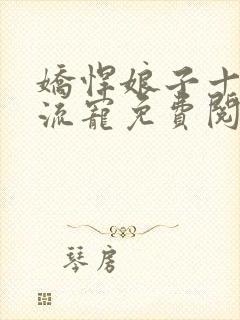 嬌悍娘子十
流寵免費閱
琴房